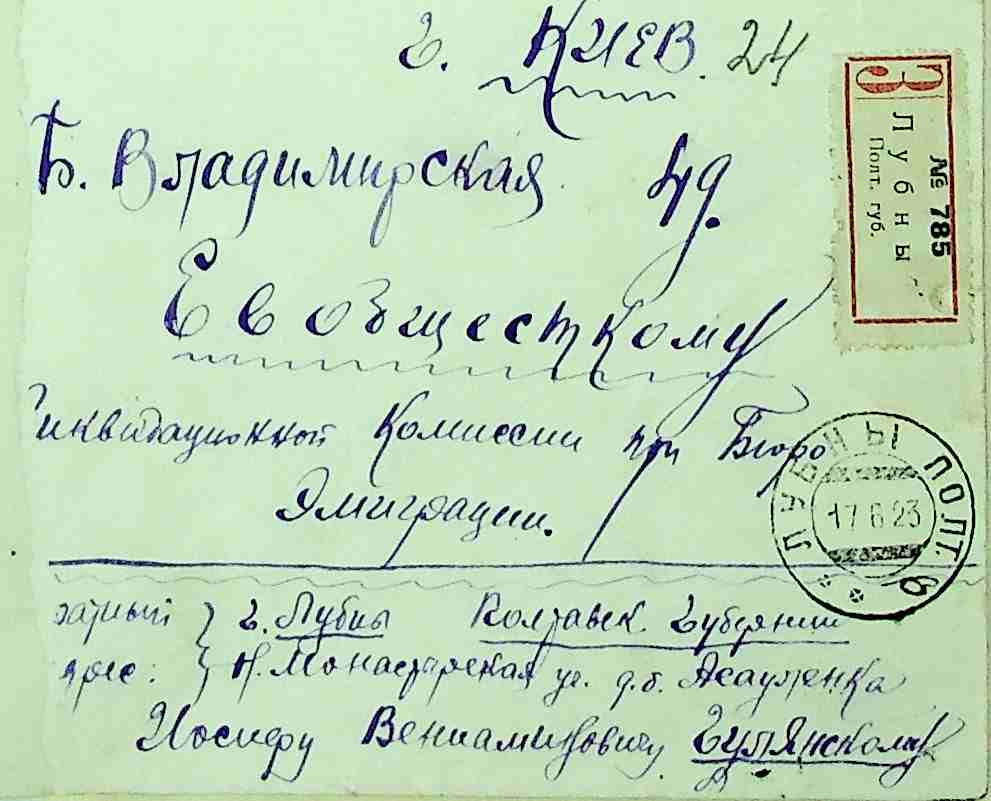 г. КИЕВ. 24
Б. Владимирская 49.
Евобщесткому
Ликвидационной Комиссии при Бюро
Эмиграции.
г. Лубны Полтавск. Губернии
Н. Монастырская ул. д. б. Асауленка
Иосифу Вениаминовичу
З
Лубны
Полт. губ.
№ 785
ЛУБНЫ ПОЛТ.
17 6 23